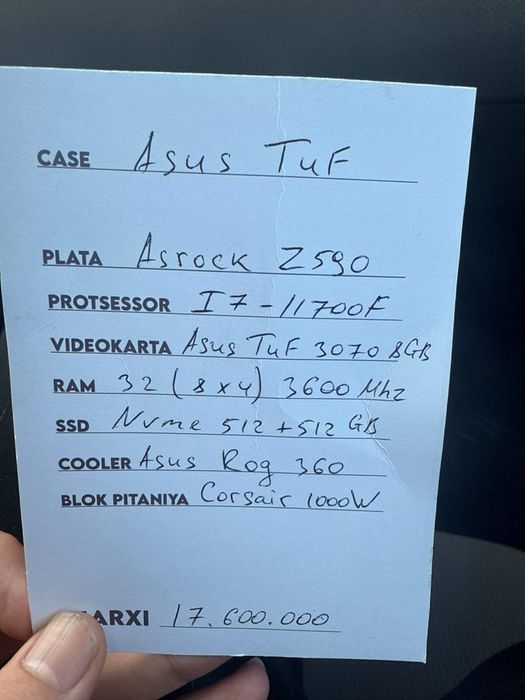 CASE Asus TuF
PLATA Asrock Z590
PROTSESSOR I7-11700F
VIDEOKARTA Asus TuF 3070 8GB
RAM 32 (8x4) 3600 Mhz
SSD Nvme 512+512 GB
COOLER Asus Rog 360
BLOK PITANIYA Corsair 1000W
ARXI 17.600.000